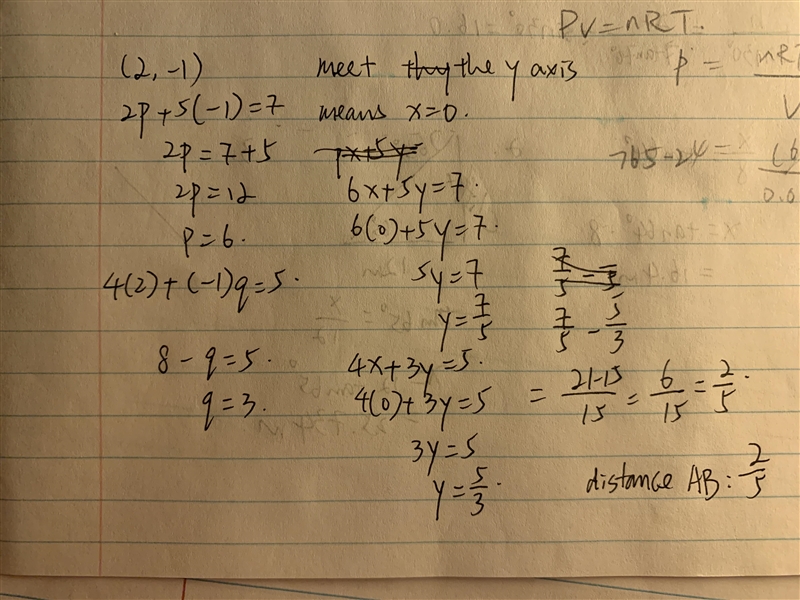 PV = nRT.
p = nRT
V
(2, -1)
2p + 5(-1) = 7
2p = 7 + 5
2p = 12
p = 6.
4(2) + (-1)q = 5.
8 - q = 5.
q = 3.
meet the y axis
means x = 0.
px + 5y =
6x + 5y = 7.
6(0) + 5y = 7.
5y = 7
y = 7/5
4x + 3y = 5.
4(0) + 3y = 5
3y = 5
y = 5/3.
7/5 - 5/3
= 21-15/15 = 6/15 = 2/5.
distance AB: 2/5
765-24